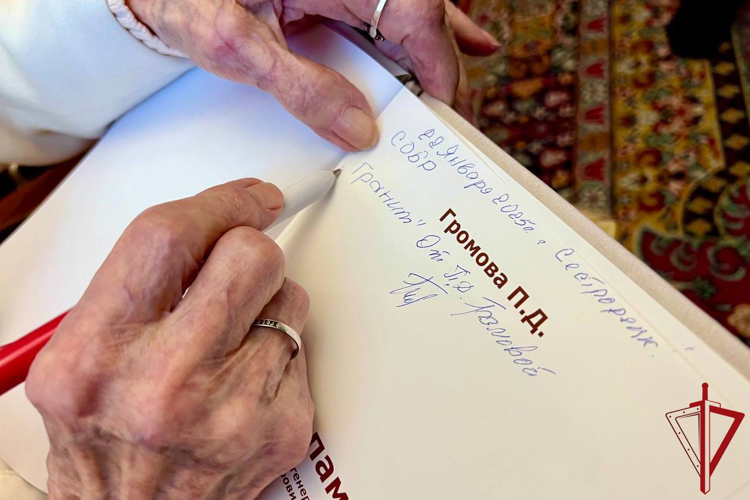 22 Января 2025г. г. Сестрорецк.
СОБР
Гранит" От П.Д. Громовой
Громова П.Д.
пам
генер
рови